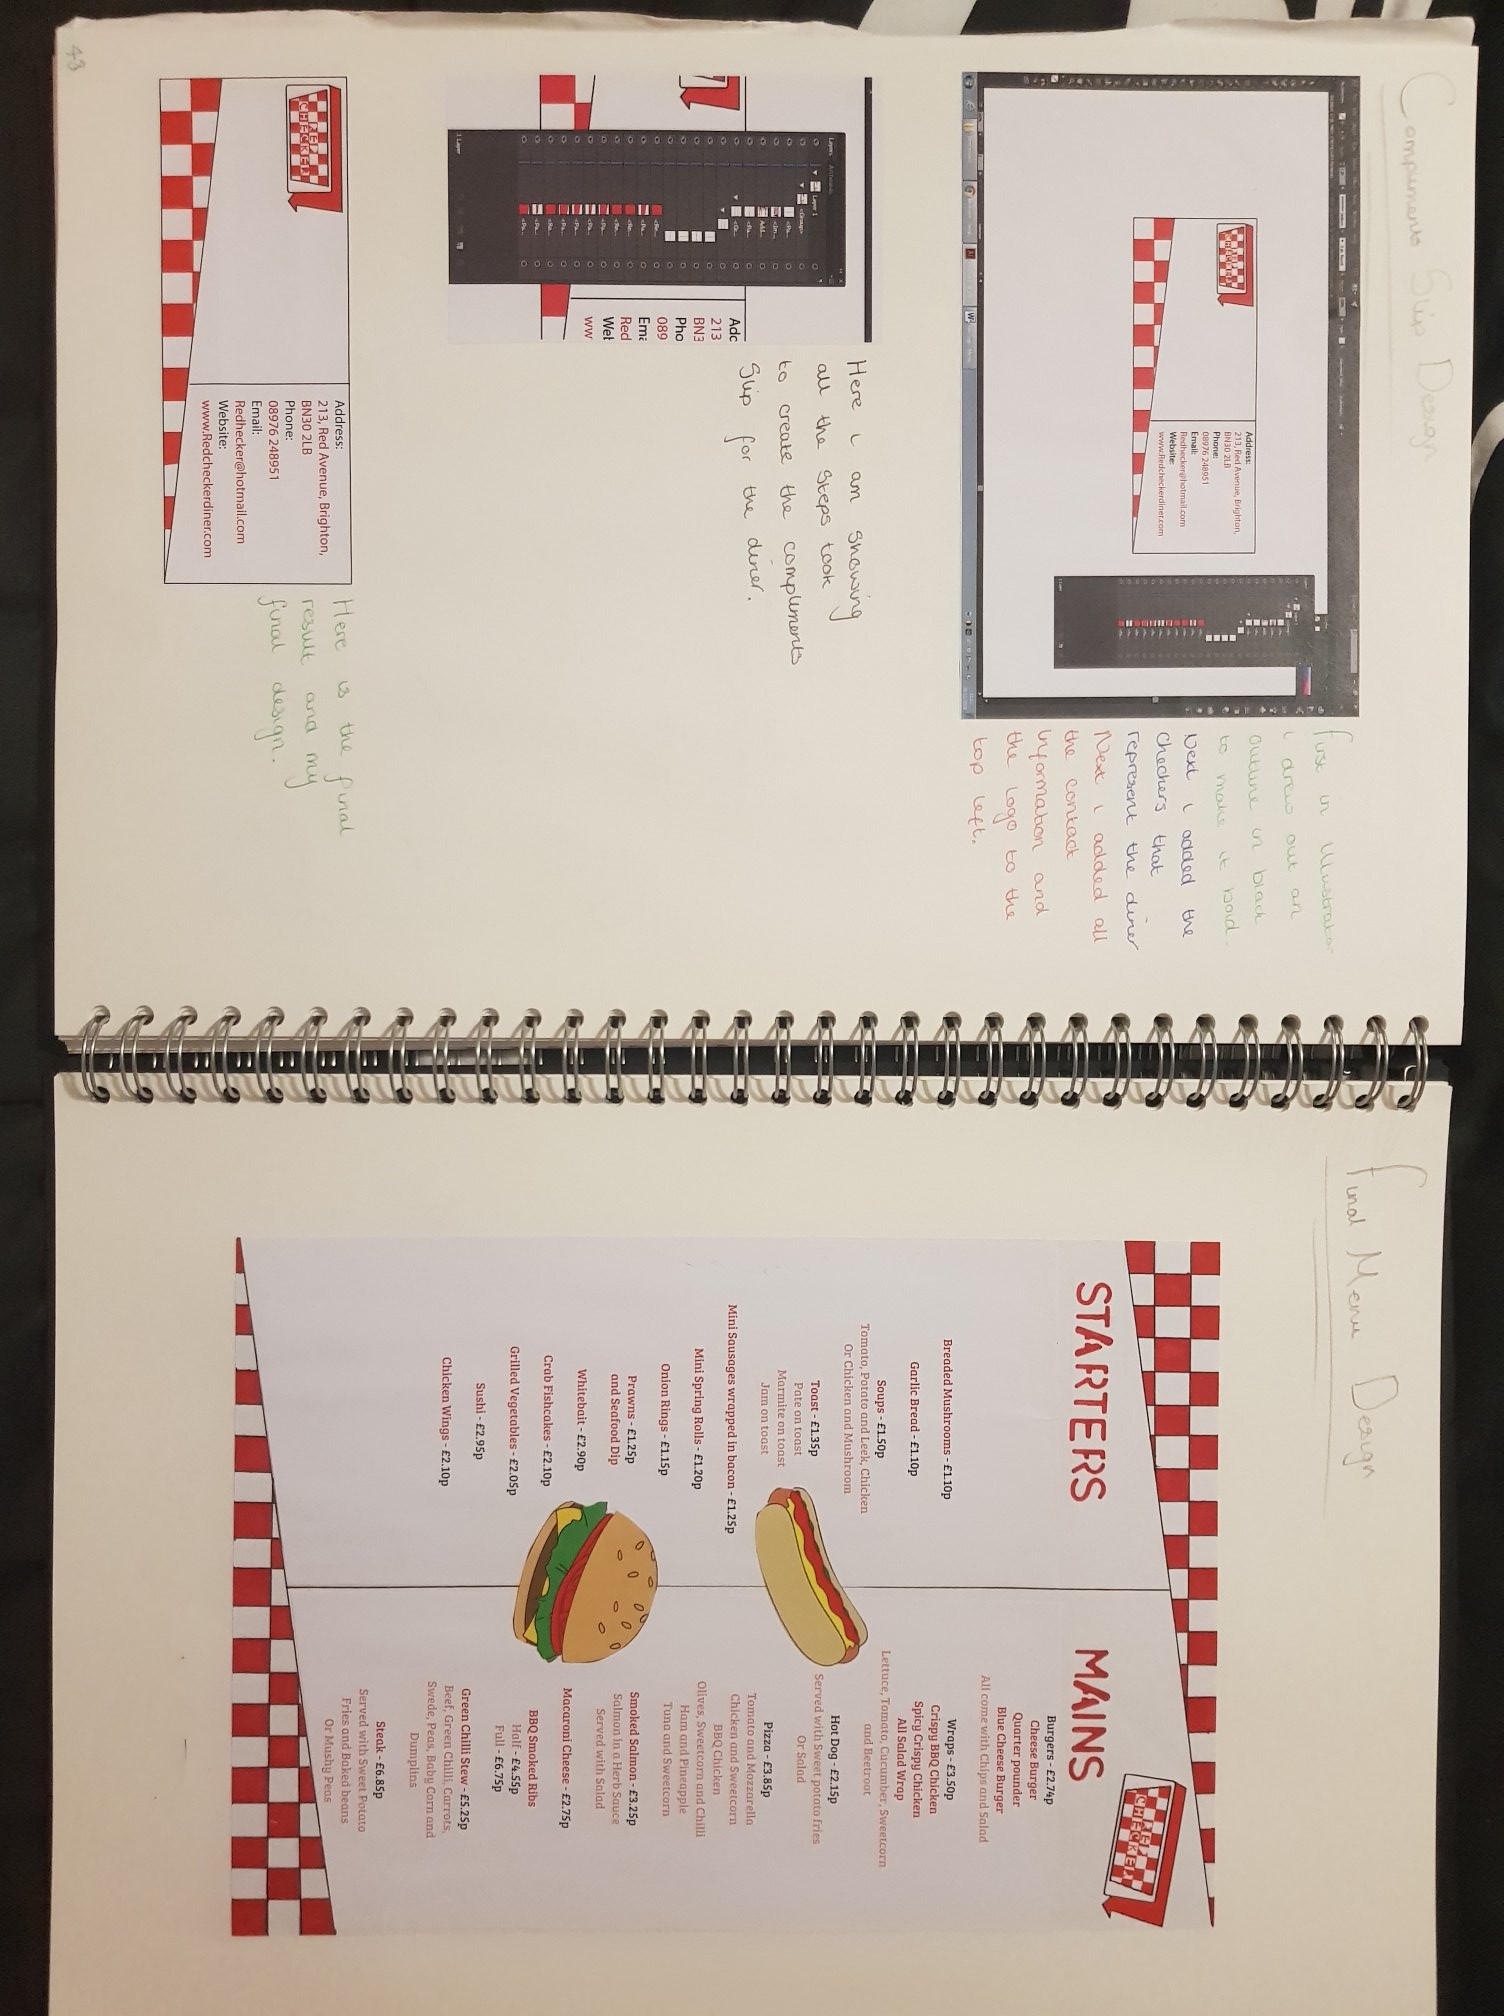 Compliments Slip Design
Address:
213, Red Avenue, Brighton,
BN30 2LB
Phone:
08976 248951
Email:
Redhecker@hotmail.com
Website:
www.Redcheckerdiner.com
First in Illustrator
i drew out an
outline in black
to make it bold.
Next i added the
checkers that
represent the diner
Next i added all
the contact
information and
the logo to the
top left.
Layers
Layer 1
<Group>
<Pa...
<Im...
Add...
<Pa...
1 Layer
Adc
213
BN3
Pho
089
Ema
Red
Wel
ww
Here i am showing
all the steps took
to create the compliments
slip for the diner.
RED
CHECKER
Address:
213, Red Avenue, Brighton,
BN30 2LB
Phone:
08976 248951
Email:
Redhecker@hotmail.com
Website:
www.Redcheckerdiner.com
Here is the final
result and my
final design.
43
Final Menu Design
STARTERS
Breaded Mushrooms - £1.10p
Garlic Bread - £1.10p
Soups - £1.50p
Tomato, Potato and Leek, Chicken
Or Chicken and Mushroom
Toast - £1.35p
Pate on toast
Marmite on toast
Jam on toast
Mini Sausages wrapped in bacon - £1.25p
Mini Spring Rolls - £1.20p
Onion Rings - £1.15p
Prawns - £1.25p
and Seafood Dip
Whitebait - £2.90p
Crab Fishcakes - £2.10p
Grilled Vegetables - £2.05p
Sushi - £2.95p
Chicken Wings - £2.10p
MAINS
RED
CHECKER
Burgers - £2.74p
Cheese Burger
Quarter pounder
Blue Cheese Burger
All come with Chips and Salad
Wraps - £3.50p
Crispy BBQ Chicken
Spicy Crispy Chicken
All Salad Wrap
Lettuce, Tomato, Cucumber, Sweetcorn
and Beetroot
Hot Dog - £2.15p
Served with Sweet potato fries
Or Salad
Pizza - £3.85p
Tomato and Mozzarella
Chicken and Sweetcorn
BBQ Chicken
Olives, Sweetcorn and Chilli
Ham and Pineapple
Tuna and Sweetcorn
Smoked Salmon - £3.25p
Salmon in a Herb Sauce
Served with Salad
Macaroni Cheese - £2.75p
BBQ Smoked Ribs
Half - £4.55p
Full - £6.75p
Green Chilli Stew - £5.25p
Beef, Green Chilli, Carrots,
Swede, Peas, Baby Corn and
Dumplins
Steak - £6.85p
Served with Sweet Potato
Fries and Baked beans
Or Mushy Peas